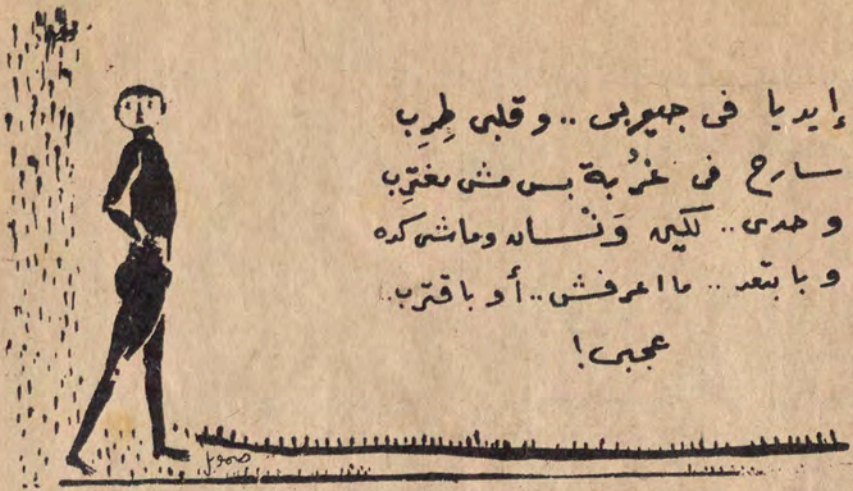 إيديا فى جيوبى .. و قلبى طِرِب
سارح فى غُربة بس مش مغترِب
وحدى .. لكين وَنْسان وماشى كده
و بابتعد .. ما اعرفش .. أو باقترب ..
عجبى !